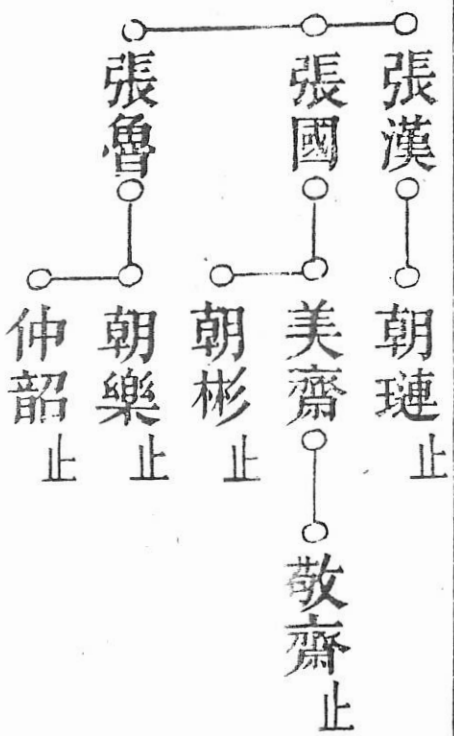 張漢
朝璉止
張國
美齋
敬齋止
朝彬止
張魯
朝樂止
仲韶止